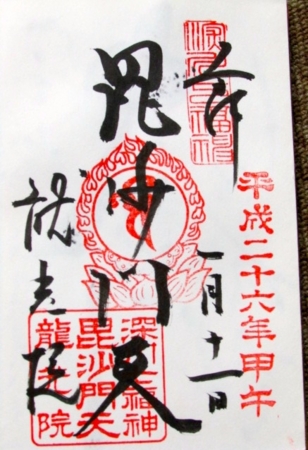 奉拝
深川七福神
平成二十六年甲午
一月十一日
毘沙門天
龍光院
深川七福神
毘沙門天
龍光院